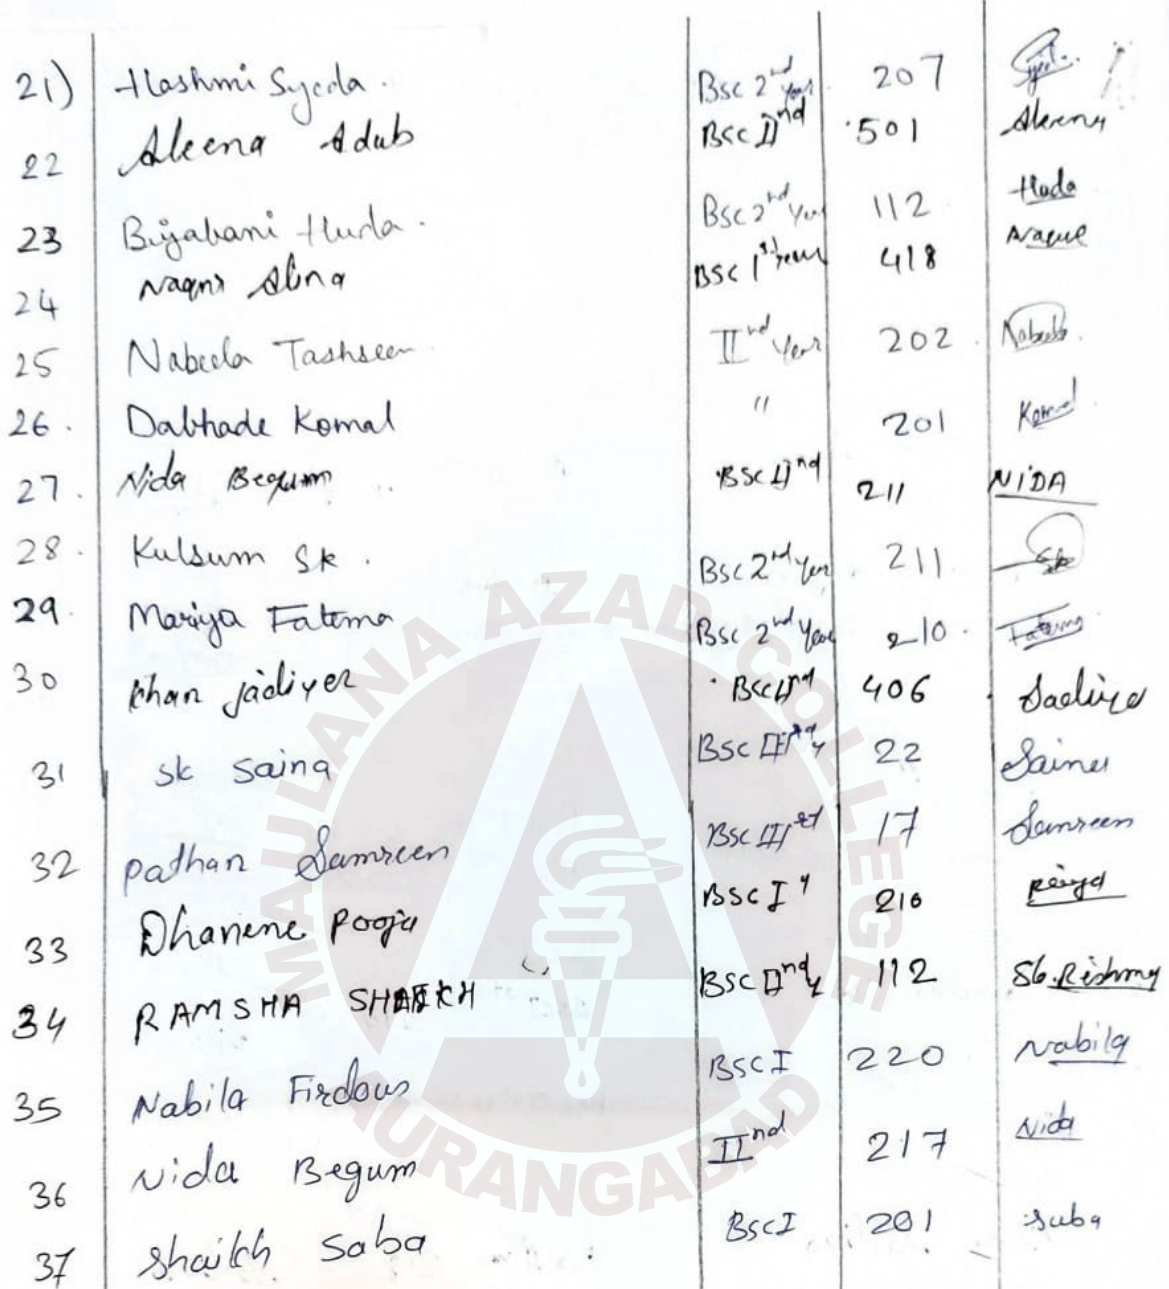 21) Hashmi Syeda. Bsc 2nd Year 207 Syed.
22 Aleena Adub Bsc IInd 501 Aleena
23 Biyabani Huda. Bsc 2nd Year 112 Huda
24 Naqvi Alina BSC 1st year 418
25 Nabeela Tashseen IInd Year 202 Nabeela
26. Dabhade Komal " 201 Komal
27. Nida Begum BSc IInd 211 NIDA
28. Kulsum Sk. Bsc 2nd Year 211 Sk
29. Mariya Fatema Bsc 2nd Year 210 Fatema
30 Khan Sadiya BScIInd 406 Sadiya
31 Sk Saina Bsc III y 22 Saina
32 Pathan Samreen Bsc III 17 Samreen
33 Dhanene Pooja BSc I y 210
34 RAMSHA SHAIKH BSC IInd y 112
35 Nabila Firdous BSC I 220 Nabila
36 Nida Begum IInd 217 Nida
37 Shaikh Saba BSc I 201 Saba
MAULANA AZAD COLLEGE
AURANGABAD